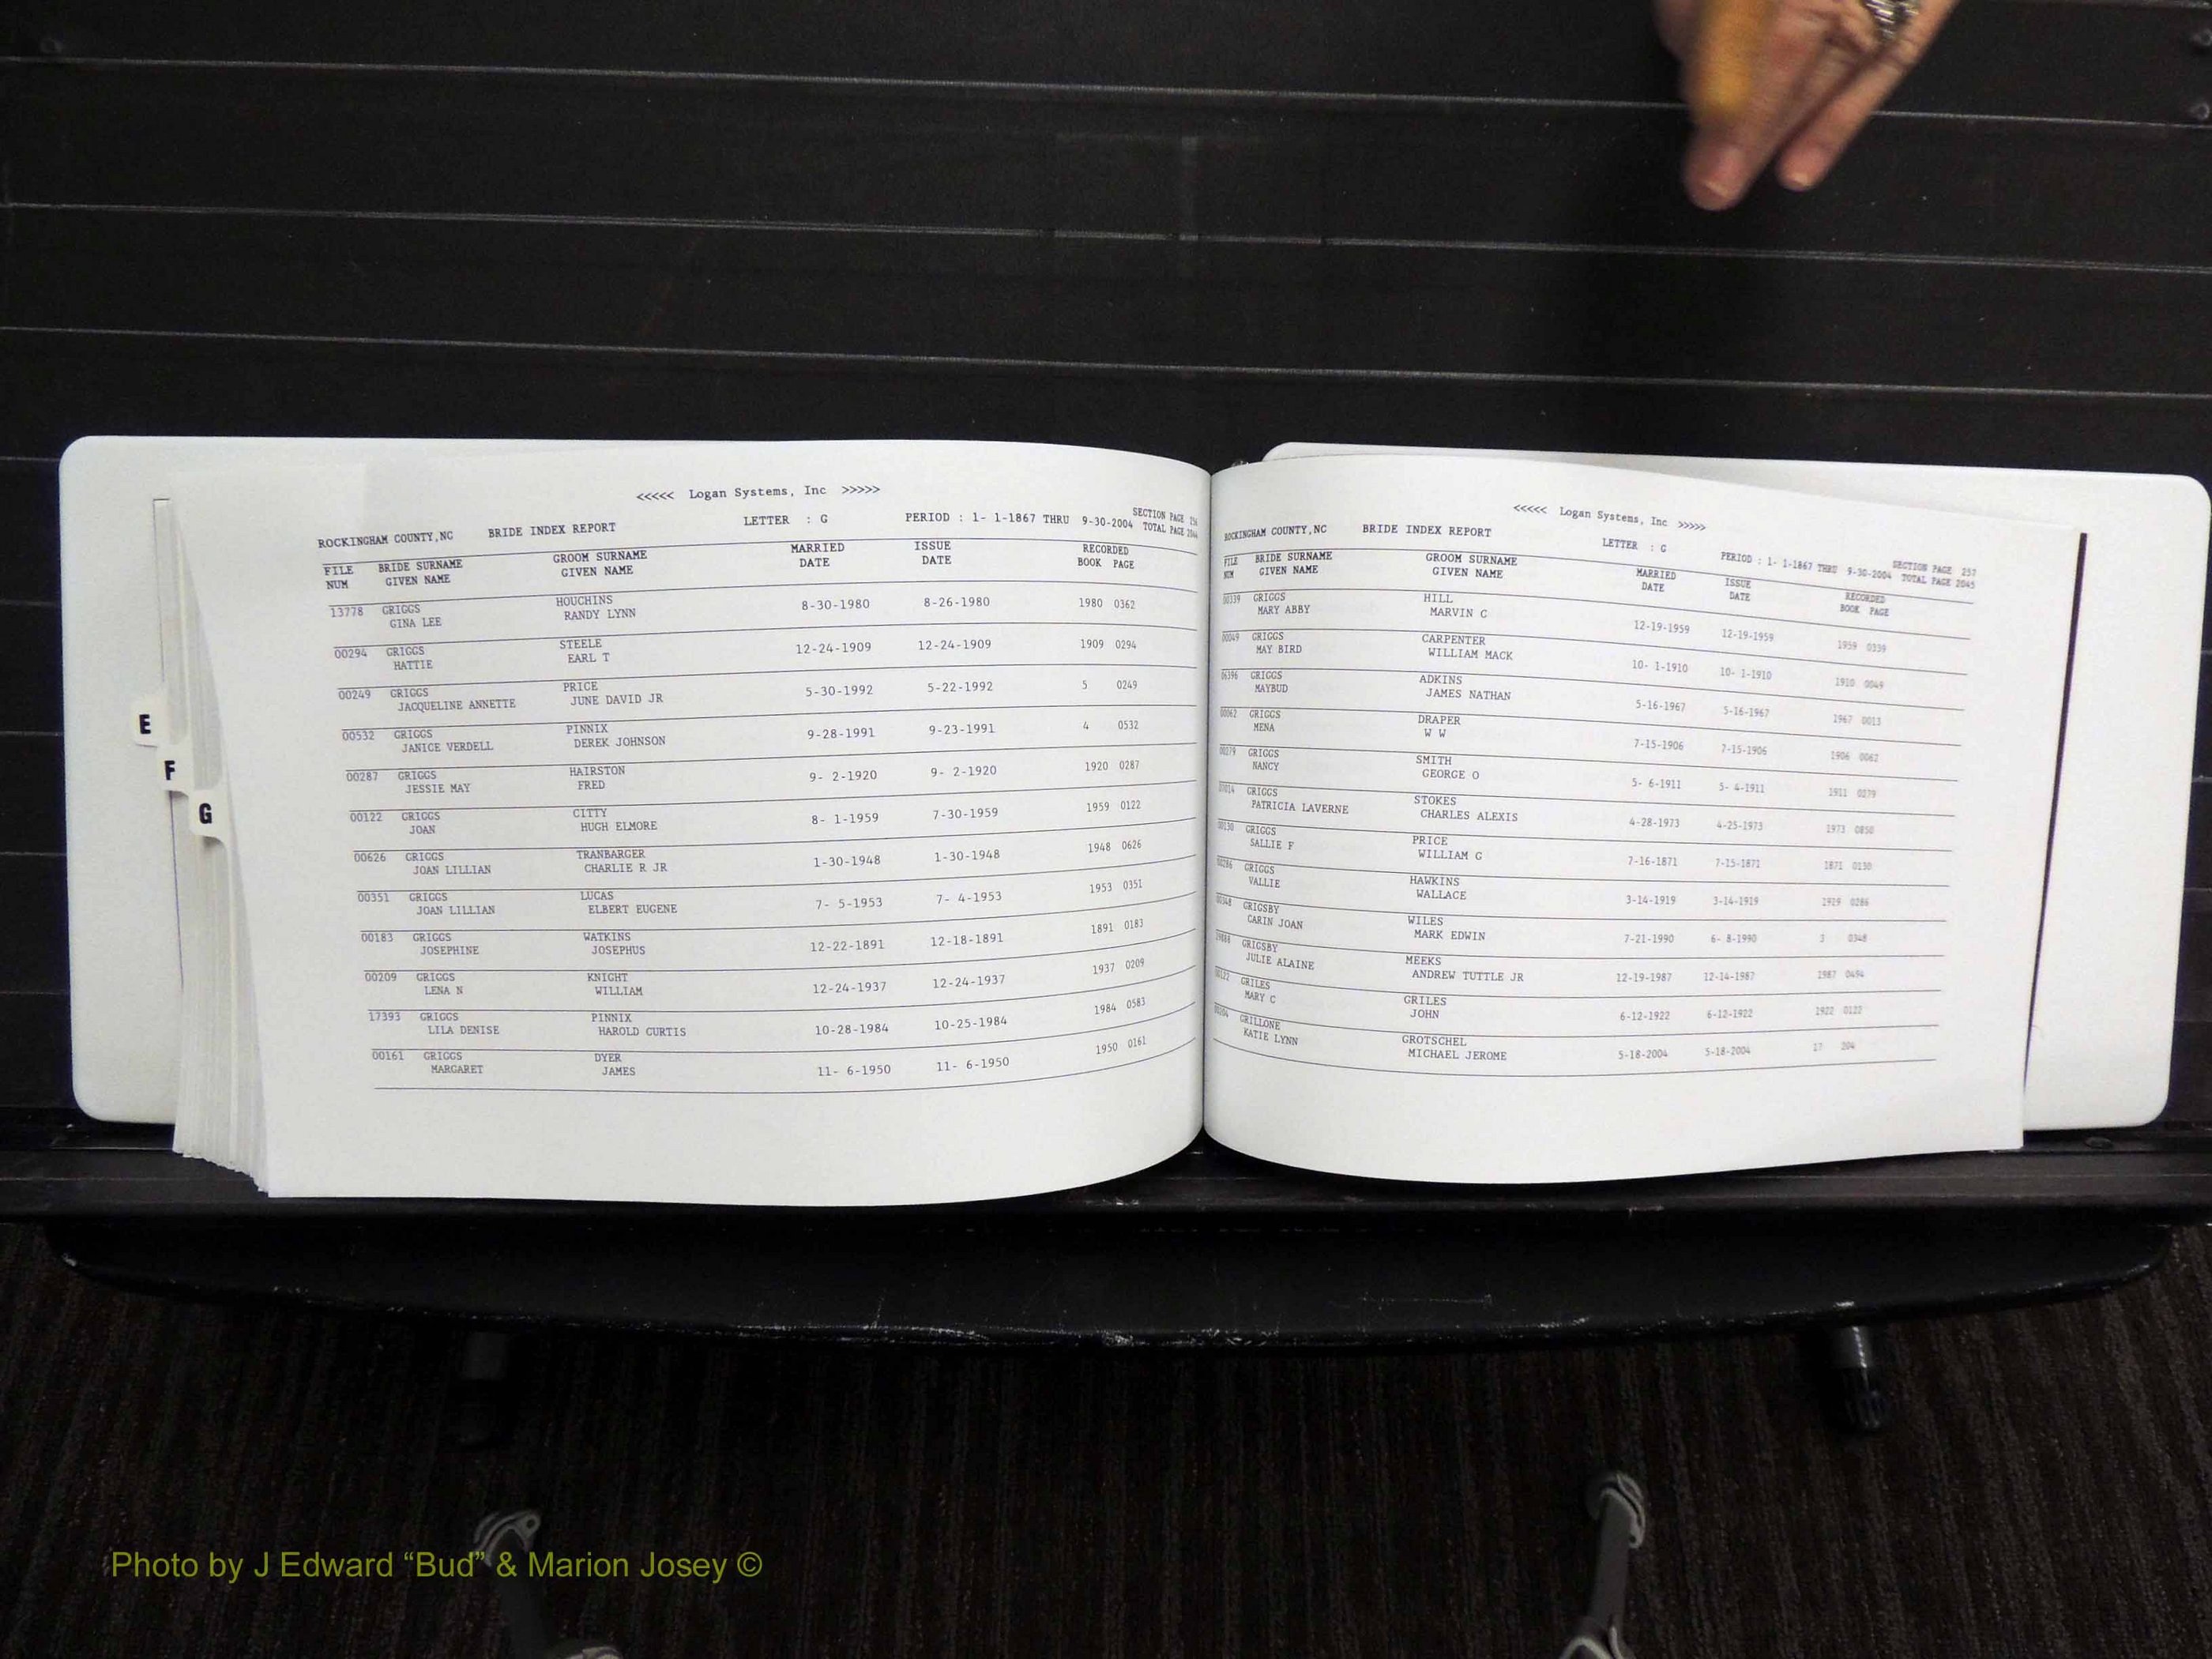 <<<<< Logan Systems, Inc >>>>>
ROCKINGHAM COUNTY,NC BRIDE INDEX REPORT LETTER : G PERIOD : 1- 1-1867 THRU 9-30-2004 SECTION PAGE 256
TOTAL PAGE 2044
FILE BRIDE SURNAME GROOM SURNAME MARRIED ISSUE RECORDED
NUM GIVEN NAME GIVEN NAME DATE DATE BOOK PAGE
13778 GRIGGS HOUCHINS 8-30-1980 8-26-1980 1980 0362
GINA LEE RANDY LYNN
00294 GRIGGS STEELE 12-24-1909 12-24-1909 1909 0294
HATTIE EARL T
00249 GRIGGS PRICE 5-30-1992 5-22-1992 5 0249
JACQUELINE ANNETTE JUNE DAVID JR
00532 GRIGGS PINNIX 9-28-1991 9-23-1991 4 0532
JANICE VERDELL DEREK JOHNSON
00287 GRIGGS HAIRSTON 9- 2-1920 9- 2-1920 1920 0287
JESSIE MAY FRED
00122 GRIGGS CITTY 8- 1-1959 7-30-1959 1959 0122
JOAN HUGH ELMORE
00626 GRIGGS TRANBARGER 1-30-1948 1-30-1948 1948 0626
JOAN LILLIAN CHARLIE R JR
00351 GRIGGS LUCAS 7- 5-1953 7- 4-1953 1953 0351
JOAN LILLIAN ELBERT EUGENE
00183 GRIGGS WATKINS 12-22-1891 12-18-1891 1891 0183
JOSEPHINE JOSEPHUS
00209 GRIGGS KNIGHT 12-24-1937 12-24-1937 1937 0209
LENA N WILLIAM
17393 GRIGGS PINNIX 10-28-1984 10-25-1984 1984 0583
LILA DENISE HAROLD CURTIS
00161 GRIGGS DYER 11- 6-1950 11- 6-1950 1950 0161
MARGARET JAMES
E
F
G
<<<<< Logan Systems, Inc >>>>>
ROCKINGHAM COUNTY,NC BRIDE INDEX REPORT LETTER : G PERIOD : 1- 1-1867 THRU 9-30-2004 SECTION PAGE 257
TOTAL PAGE 2045
FILE BRIDE SURNAME GROOM SURNAME MARRIED ISSUE RECORDED
NUM GIVEN NAME GIVEN NAME DATE DATE BOOK PAGE
00339 GRIGGS HILL 12-19-1959 12-19-1959 1959 0339
MARY ABBY MARVIN C
00049 GRIGGS CARPENTER 10- 1-1910 10- 1-1910 1910 0049
MAY BIRD WILLIAM MACK
06396 GRIGGS ADKINS 5-16-1967 5-16-1967 1967 0013
MAYBUD JAMES NATHAN
00062 GRIGGS DRAPER 7-15-1906 7-15-1906 1906 0062
MENA W W
00279 GRIGGS SMITH 5- 6-1911 5- 4-1911 1911 0279
NANCY GEORGE O
GRIGGS STOKES 4-28-1973 4-25-1973 1973 0850
PATRICIA LAVERNE CHARLES ALEXIS
00130 GRIGGS PRICE 7-16-1871 7-15-1871 1871 0130
SALLIE F WILLIAM G
00286 GRIGGS HAWKINS 3-14-1919 3-14-1919 0286
VALLIE WALLACE
00348 GRIGSBY WILES 7-21-1990 6- 8-1990 3 0348
CARIN JOAN MARK EDWIN
GRIGSBY MEEKS 12-19-1987 12-14-1987 1987 0494
JULIE ALAINE ANDREW TUTTLE JR
00122 GRILES GRILES 6-12-1922 6-12-1922 1922 0122
MARY C JOHN
00204 GRILLONE GROTSCHEL 5-18-2004 5-18-2004 17 204
KATIE LYNN MICHAEL JEROME
Photo by J Edward “Bud” & Marion Josey ©